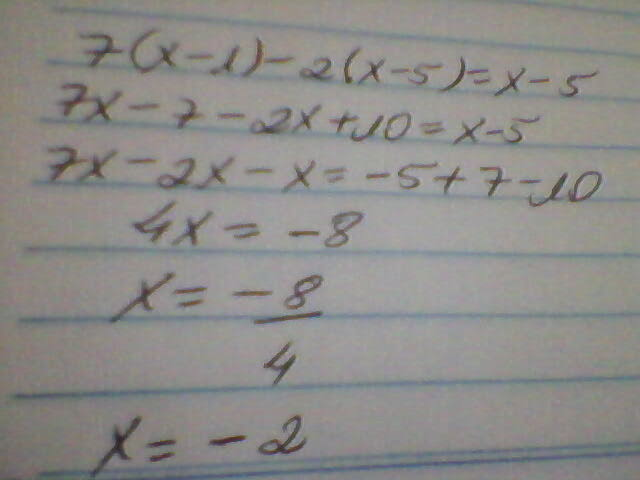 7(x-1)-2(x-5)=x-5
7x-7-2x+10=x-5
7x-2x-x=-5+7-10
4x=-8
x=-8
4
x=-2